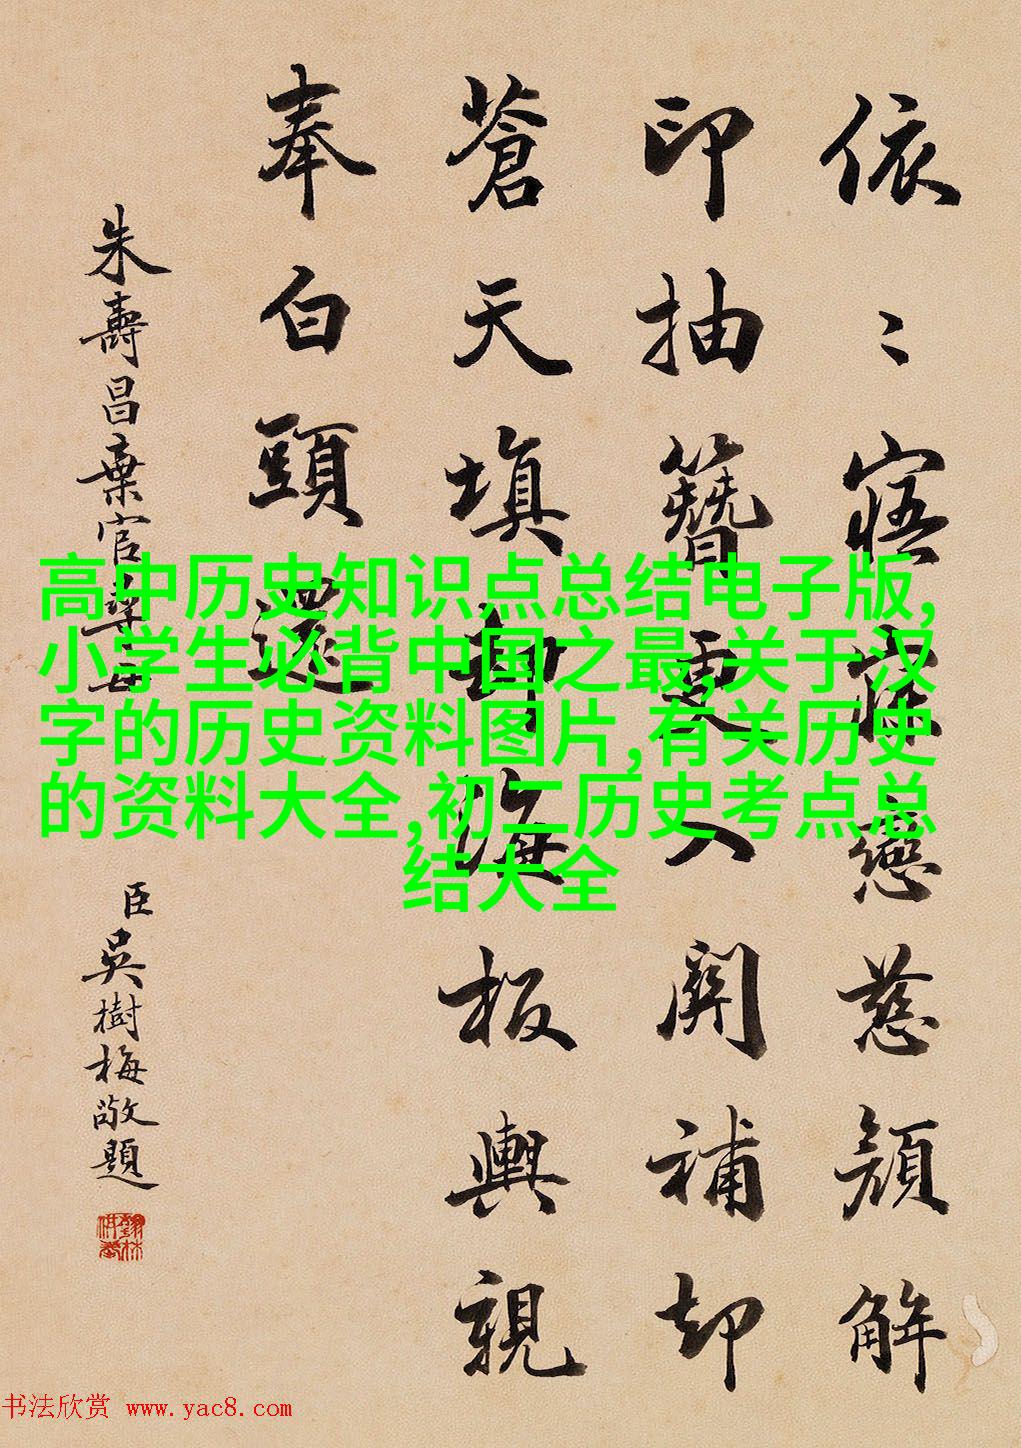 依〻寤寐戀慈顏解
印抽簪更入關補却
蒼天填海板輿親
奉白頭還
朱壽昌棄官尋母
臣吳樹梅敬題
高中历史知识点总结电子版,
小学生必背中国之最,关于汉
字的历史资料图片,有关历史
的资料大全,初二历史考点总
结大全
书法欣赏 www.yac8.com